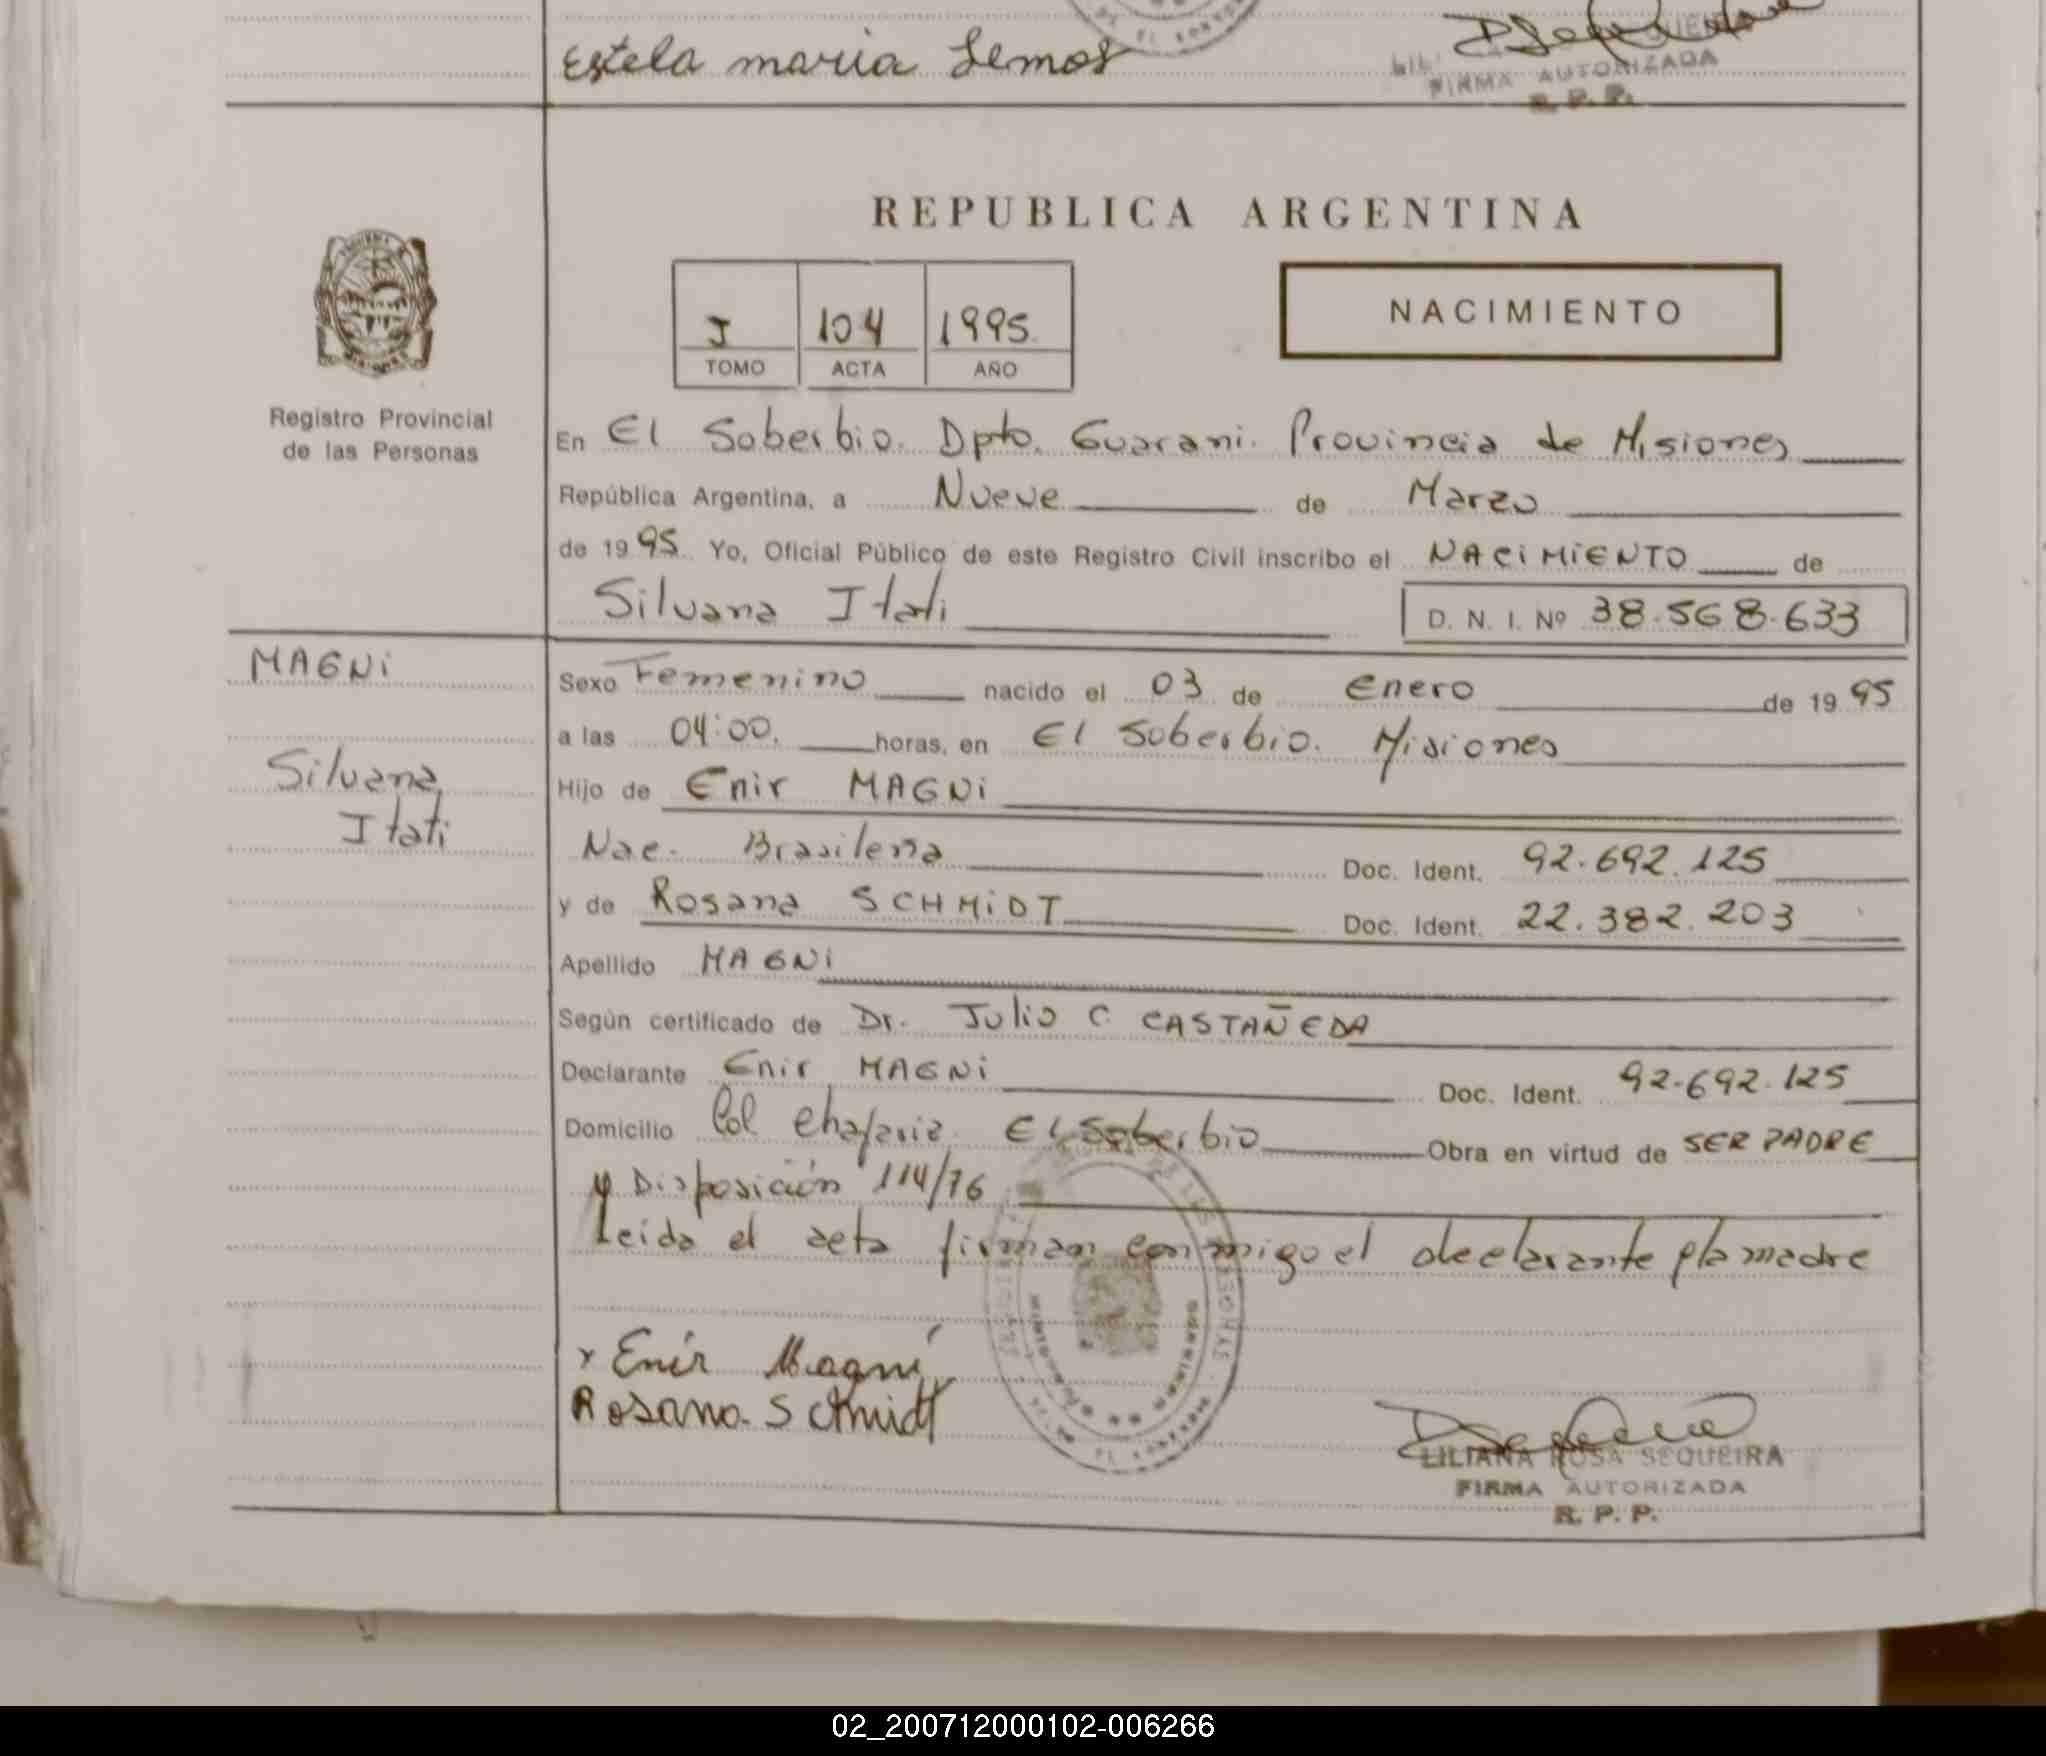 Estela maria Lemos
FIRMA AUTORIZADA
R. P. P.
REPUBLICA ARGENTINA
I 104 1995
TOMO ACTA AÑO
NACIMIENTO
Registro Provincial
de las Personas
En El Soberbio. Dpto. Guarani. Provincia de Misiones
República Argentina, a Nueve de Marzo
de 1995 Yo, Oficial Público de este Registro Civil inscribo el NACIMIENTO de
Silvana Itati D. N. I. Nº 38.568.633
MAGNI
Silvana
Itati
Sexo Femenino nacido el 03 de Enero de 1995
a las 04:00. horas, en El Soberbio. Misiones
Hijo de Enir MAGNI
Nac. Brasileña Doc. Ident. 92.692.125
y de Rosana SCHMIDT Doc. Ident. 22.382.203
Apellido MAGNI
Según certificado de Dr. Julio C. CASTAÑEDA
Declarante Enir MAGNI Doc. Ident. 92.692.125
Domicilio Col Chafariz. El Soberbio Obra en virtud de SER PADRE
y Disposición 114/76
Leida el acta firman conmigo el declarante y la madre
x Enir Magni
Rosana Schmidt
LILIANA ROSA SEQUEIRA
FIRMA AUTORIZADA
R. P. P.
02_200712000102-006266